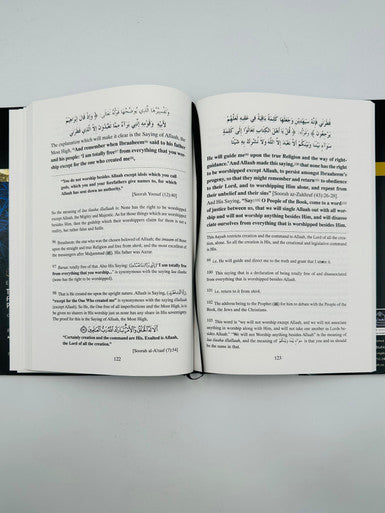 وتفسيرها الذي يوضحها قوله تعالى: ﴿ وَإِذْ قَالَ إِبْرَاهِيمُ
لِأَبِيهِ وَقَوْمِهِ إِنَّنِي بَرَاءٌ مِمَّا تَعْبُدُونَ إِلَّا الَّذِي
The explanation which will make it clear is the Saying of Allaah, the
Most High, "And remember when Ibraaheem said to his father
and his people: "I am totally free from everything that you wor-
ship except for the one who created me
"You do not worship besides Allaah except idols which you call
gods, which you and your forefathers give names to, for which
Allaah has sent down no authority."
[Soorah Yusuf (12):40]
So the meaning of laa ilaaha illallaah is: None has the right to be worshipped except
Allaah, the Mighty and Majestic. As for those things which are worshipped
besides Him, the godship which their worshippers claim for them is not
rather false and futile.
96 Ibraaheem: the one who was the chosen beloved of Allaah; the
the messengers after Muhammad. His father was Aazar.
97 totally free
from everything that you worship..." is synonymous with the saying laa ilaaha
(illallaah).
98 That is created me upon the upright nature. Allaah's Saying,
"except for the One Who created me" is synonymous with the saying
Allaah). So He, the One free of all imperfections and the Most High, is to be
given no sharers in His worship just as He has no sharer in His sovereignty.
The proof for this is the Saying of Allaah, the Most High,
أَلَا لَهُ الْخَلْقُ وَالْأَمْرُ تَبَارَكَ اللَّهُ رَبُّ الْعَالَمِينَ
"Certainly creation and the command are His. Exalted is Allaah,
the Lord of all creation."
[Soorah al-A'raaf (7):54]
122
فَطَرَنِي فَإِنَّهُ سَيَهْدِينِ وَجَعَلَهَا كَلِمَةً بَاقِيَةً فِي عَقِبِهِ لَعَلَّهُمْ
يَرْجِعُونَ ﴾، ﴿ قُلْ يَا أَهْلَ الْكِتَابِ تَعَالَوْا إِلَى كَلِمَةٍ
سَوَاءٍ بَيْنَنَا وَبَيْنَكُمْ أَلَّا نَعْبُدَ إِلَّا اللَّهَ وَلَا نُشْرِكَ بِهِ شَيْئًا
He will guide me upon the true Religion and the way of right-
guidance.' And Allaah made this saying, that none has the right
to be worshipped except Allaah, to persist amongst Ibraaheem's
progeny, so that they might remember and return to obedience
to their Lord, and to worshipping Him alone, and repent from
their unbelief and their sins" [Soorah az-Zukhruf (43):26-28]
And His Saying, "Say: O People of the Book, come to a word
of justice between us, that we will single Allaah out with all wor-
ship and will not worship anything besides Him, and will disso-
ciate ourselves from everything that is worshipped besides Him.
This Aayah restricts creation and the command to Allaah, the Lord of all the crea-
tion, alone. So all the creation is His, and the creational and legislative command
is His.
99 i.e. He will guide and direct me to the truth and grant that I
100 This saying that is a declaration of being totally free of and disassociated
from everything that is worshipped besides Allaah.
101 i.e. return to it from shirk.
102 The address being to the Prophet for him to debate with the People of the
Book, the Jews and the Christians.
103 This word is "we will not worship except Allaah, and we will not associate
anything in worship along with Him, and will not take one another as Lords be-
sides Allaah." "We will not worship except Allaah" is the meaning
of laa ilaaha illallaah, and the meaning of is that you and us should
be the same in that.
123